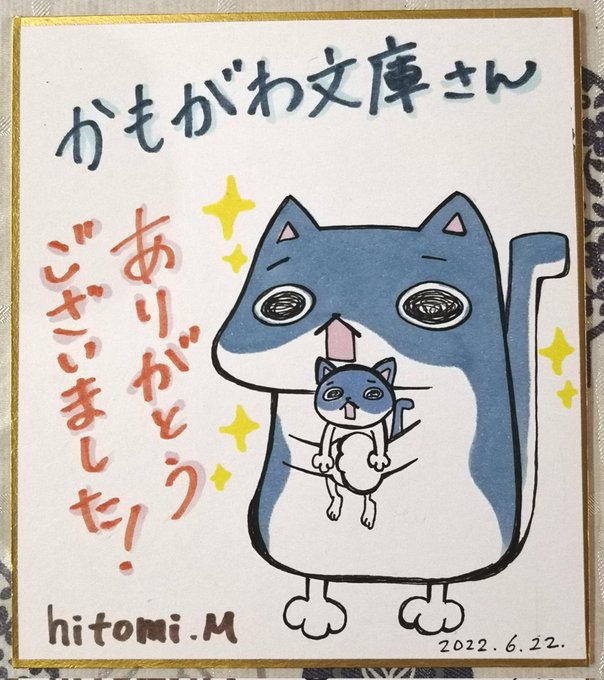 かもがわ文庫さん
ありがとう
ございました!
hitomi.M
2022.6.22.